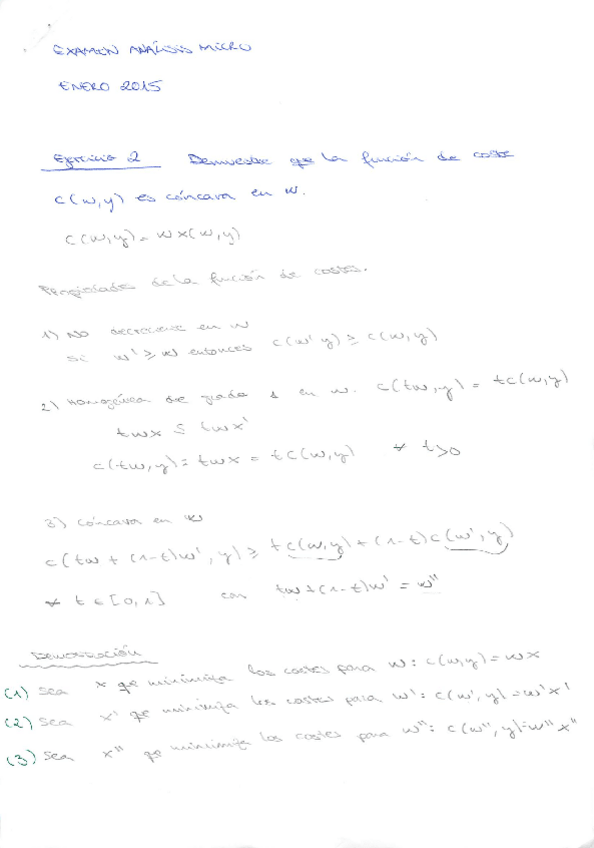 EXAMEN ANÁLISIS MICRO
ENERO 2015
Ejercicio 2 Demuestre que la función de coste
c(w,y) es cóncava en w.
c(w,y) = wx(w,y)
Propiedades de la función de costes.
1) No decreciente en w
si w' ≥ w entonces c(w' y) ≥ c(w,y)
2) Homogénea de grado 1 en w. c(tw,y) = tc(w,y)
twx ≤ twx'
c(tw,y) = twx = tc(w,y) ∀ t>0
3) Cóncava en w
c(tw + (1-t)w', y) ≥ tc(w,y) + (1-t)c(w',y)
∀ t ∈ [0,1] con tw+(1-t)w' = w''
Demostración
(1) Sea x qe minimiza los costes para w: c(w,y) = wx
(2) Sea x' qe minimiza los costes para w': c(w',y) = w'x'
(3) Sea x'' qe minimiza los costes para w'': c(w'',y) = w''x''